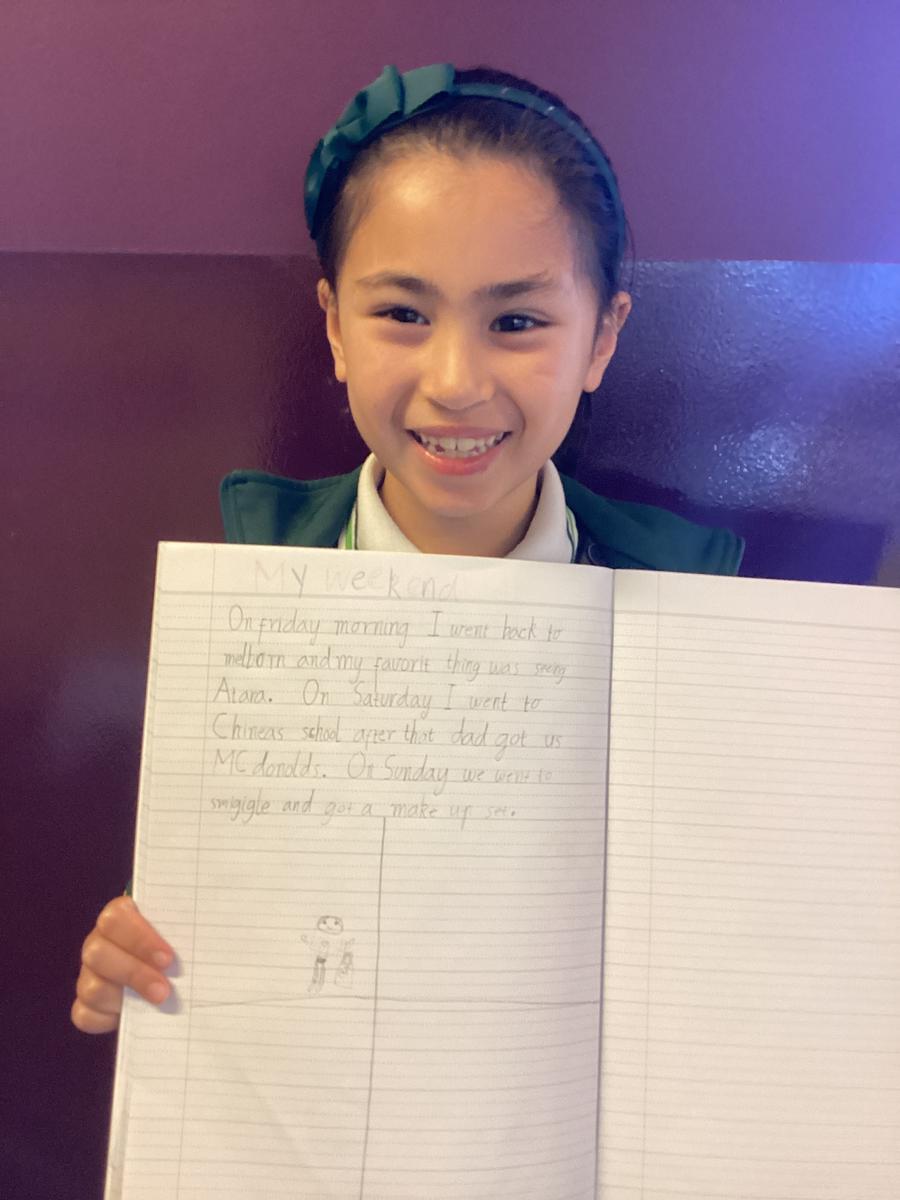 My weekend
On friday morning I went back to
melborn and my favorit thing was seeing
Atara. On Saturday I went to
Chineas school after that dad got us
MC donolds. On Sunday we went to
smigigle and got a make up set.